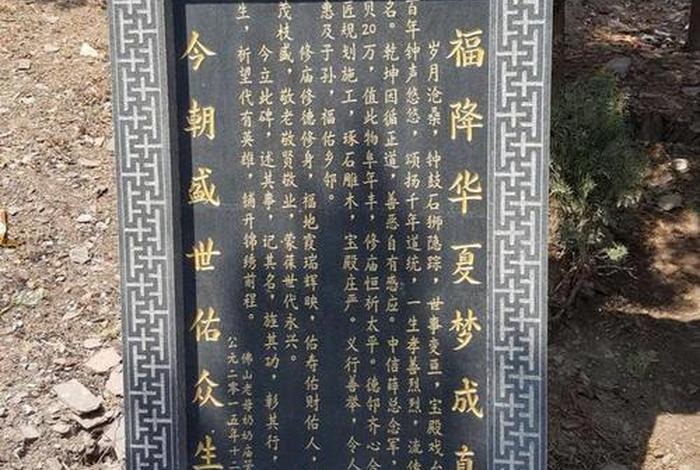 福降华夏梦成真
岁月沧桑,钟鼓石狮隐踪,世事变亘,宝殿戏台
百年钟声悠悠,颂扬千年道统,一生孝善烈烈,流传
名。乾坤因循正道,善恶自有悉应。中信薛总念军,
贝20万,值此物阜年丰,修庙恒祈太平。德邻齐心合
匠规划施工,琢石雕木,宝殿庄严。义行善举,令人
惠及子孙,福佑乡邻。
修庙修德修身,福地霞瑞辉映,佑寿佑财佑人,
茂枝盛,敬老敬贤敬业,蒙葆世代永兴。
今立此碑,述其事,记其名,旌其功,彰其行,
生,祈望代有英雄,铺开锦绣前程。
佛山老母奶奶庙
公元二零一五年十二
今朝盛世佑众生